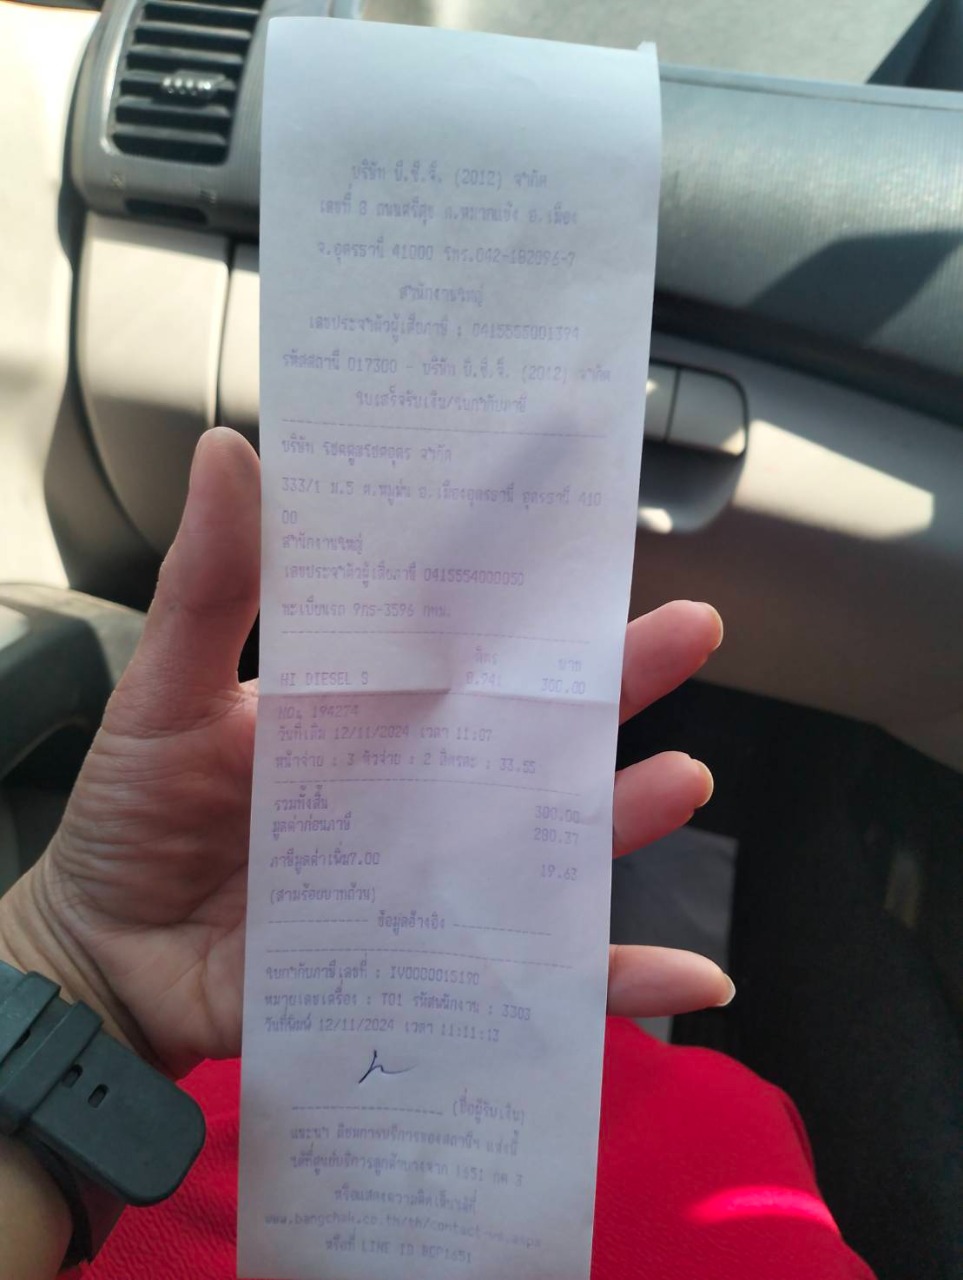 บริษัท บี.ซี.จี. (2012) จำกัด
เลขที่ 8 ถนนศรีสุข ต.หมากแข้ง อ.เมือง
จ.อุดรธานี 41000 โทร.042-182096-7
สำนักงานใหญ่
เลขประจำตัวผู้เสียภาษี : 0415555001394
รหัสสถานี 017300 - บริษัท บี.ซี.จี. (2012) จำกัด
ใบเสร็จรับเงิน/ใบกำกับภาษี
บริษัท จำกัด
333/1 ม.5 ต.หมูม่น อ.เมืองอุดรธานี อุดรธานี 410
00
สำนักงานใหญ่
เลขประจำตัวผู้เสียภาษี 0415554000050
ทะเบียนรถ 9กร-3596 กทม.
ลิตร บาท
HI DIESEL S 8.941 300.00
NO. 194274
วันที่เติม 12/11/2024 เวลา 11:07
หน้าจ่าย : 3 หัวจ่าย : 2 ลิตรละ : 33.55
รวมทั้งสิ้น 300.00
มูลค่าก่อนภาษี 280.37
ภาษีมูลค่าเพิ่ม7.00 19.63
(สามร้อยบาทถ้วน)
ข้อมูลอ้างอิง
ใบกำกับภาษีเลขที่ : IV0000015190
หมายเลขเครื่อง : T01 รหัสพนักงาน : 3303
วันที่พิมพ์ 12/11/2024 เวลา 11:11:13
(ชื่อผู้รับเงิน)
แนะนำ ติชมการบริการของสถานีฯ แห่งนี้
ได้ที่ศูนย์บริการลูกค้าบางจาก 1651 กด 3
หรือแสดงความคิดเห็นได้ที่
www.bangchak.co.th/th/contact-us.aspx
หรือที่ LINE ID BCP1651